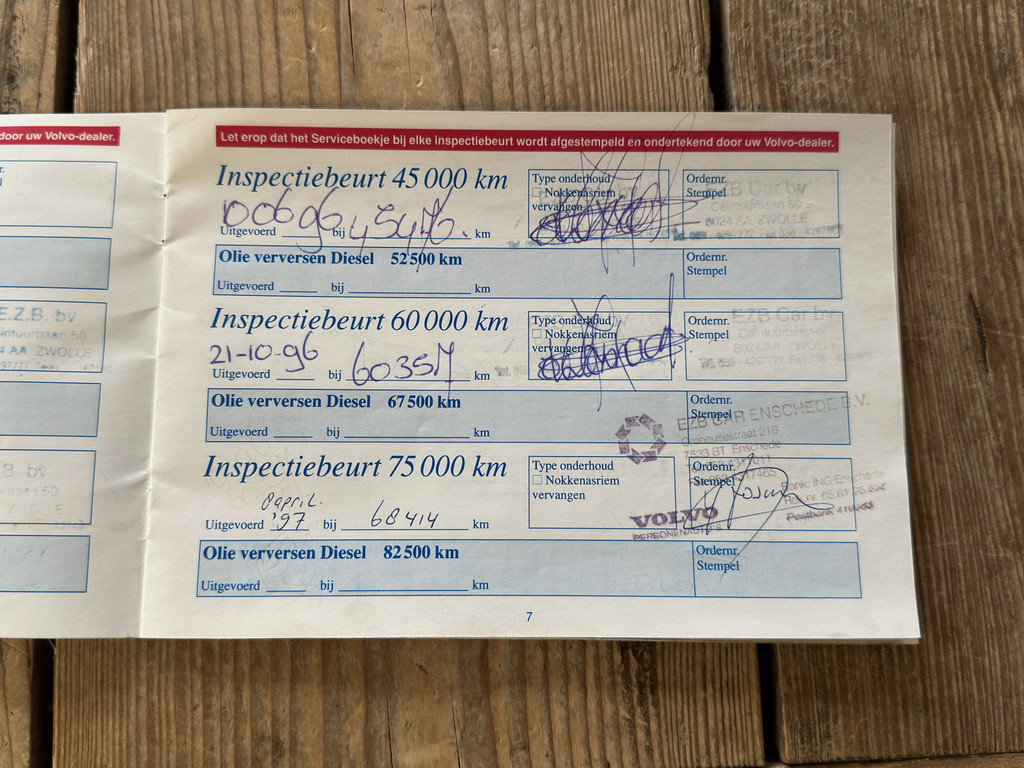 door uw Volvo-dealer.
E.Z.B. bv
4 AA ZWOLLE
B. bv
Let erop dat het Serviceboekje bij elke inspectiebeurt wordt afgestempeld en ondertekend door uw Volvo-dealer.
Inspectiebeurt 45 000 km
Type onderhoud
Nokkenasriem
vervangen
Ordernr.
Stempel
EZB Car bv
Ceintuurbaan 50
8024 AA ZWOLLE
Uitgevoerd bij km
Olie verversen Diesel 52 500 km
Ordernr.
Stempel
Uitgevoerd bij km
Inspectiebeurt 60 000 km
Type onderhoud
Nokkenasriem
vervangen
Ordernr.
Stempel
EZB Car bv
Ceintuurbaan 50
8024 AA ZWOLLE
21-10-96
Uitgevoerd bij km
Olie verversen Diesel 67 500 km
Ordernr.
Stempel
Uitgevoerd bij km
EZB CAR ENSCHEDE B.V.
7533 BT Enschede
Inspectiebeurt 75 000 km
Type onderhoud
Nokkenasriem
vervangen
Ordernr.
Stempel
Bank: ING Enschede
april
Uitgevoerd '97 bij 68414 km
VOLVO
PERSONENAUTO'S
Olie verversen Diesel 82 500 km
Ordernr.
Stempel
Uitgevoerd bij km
7